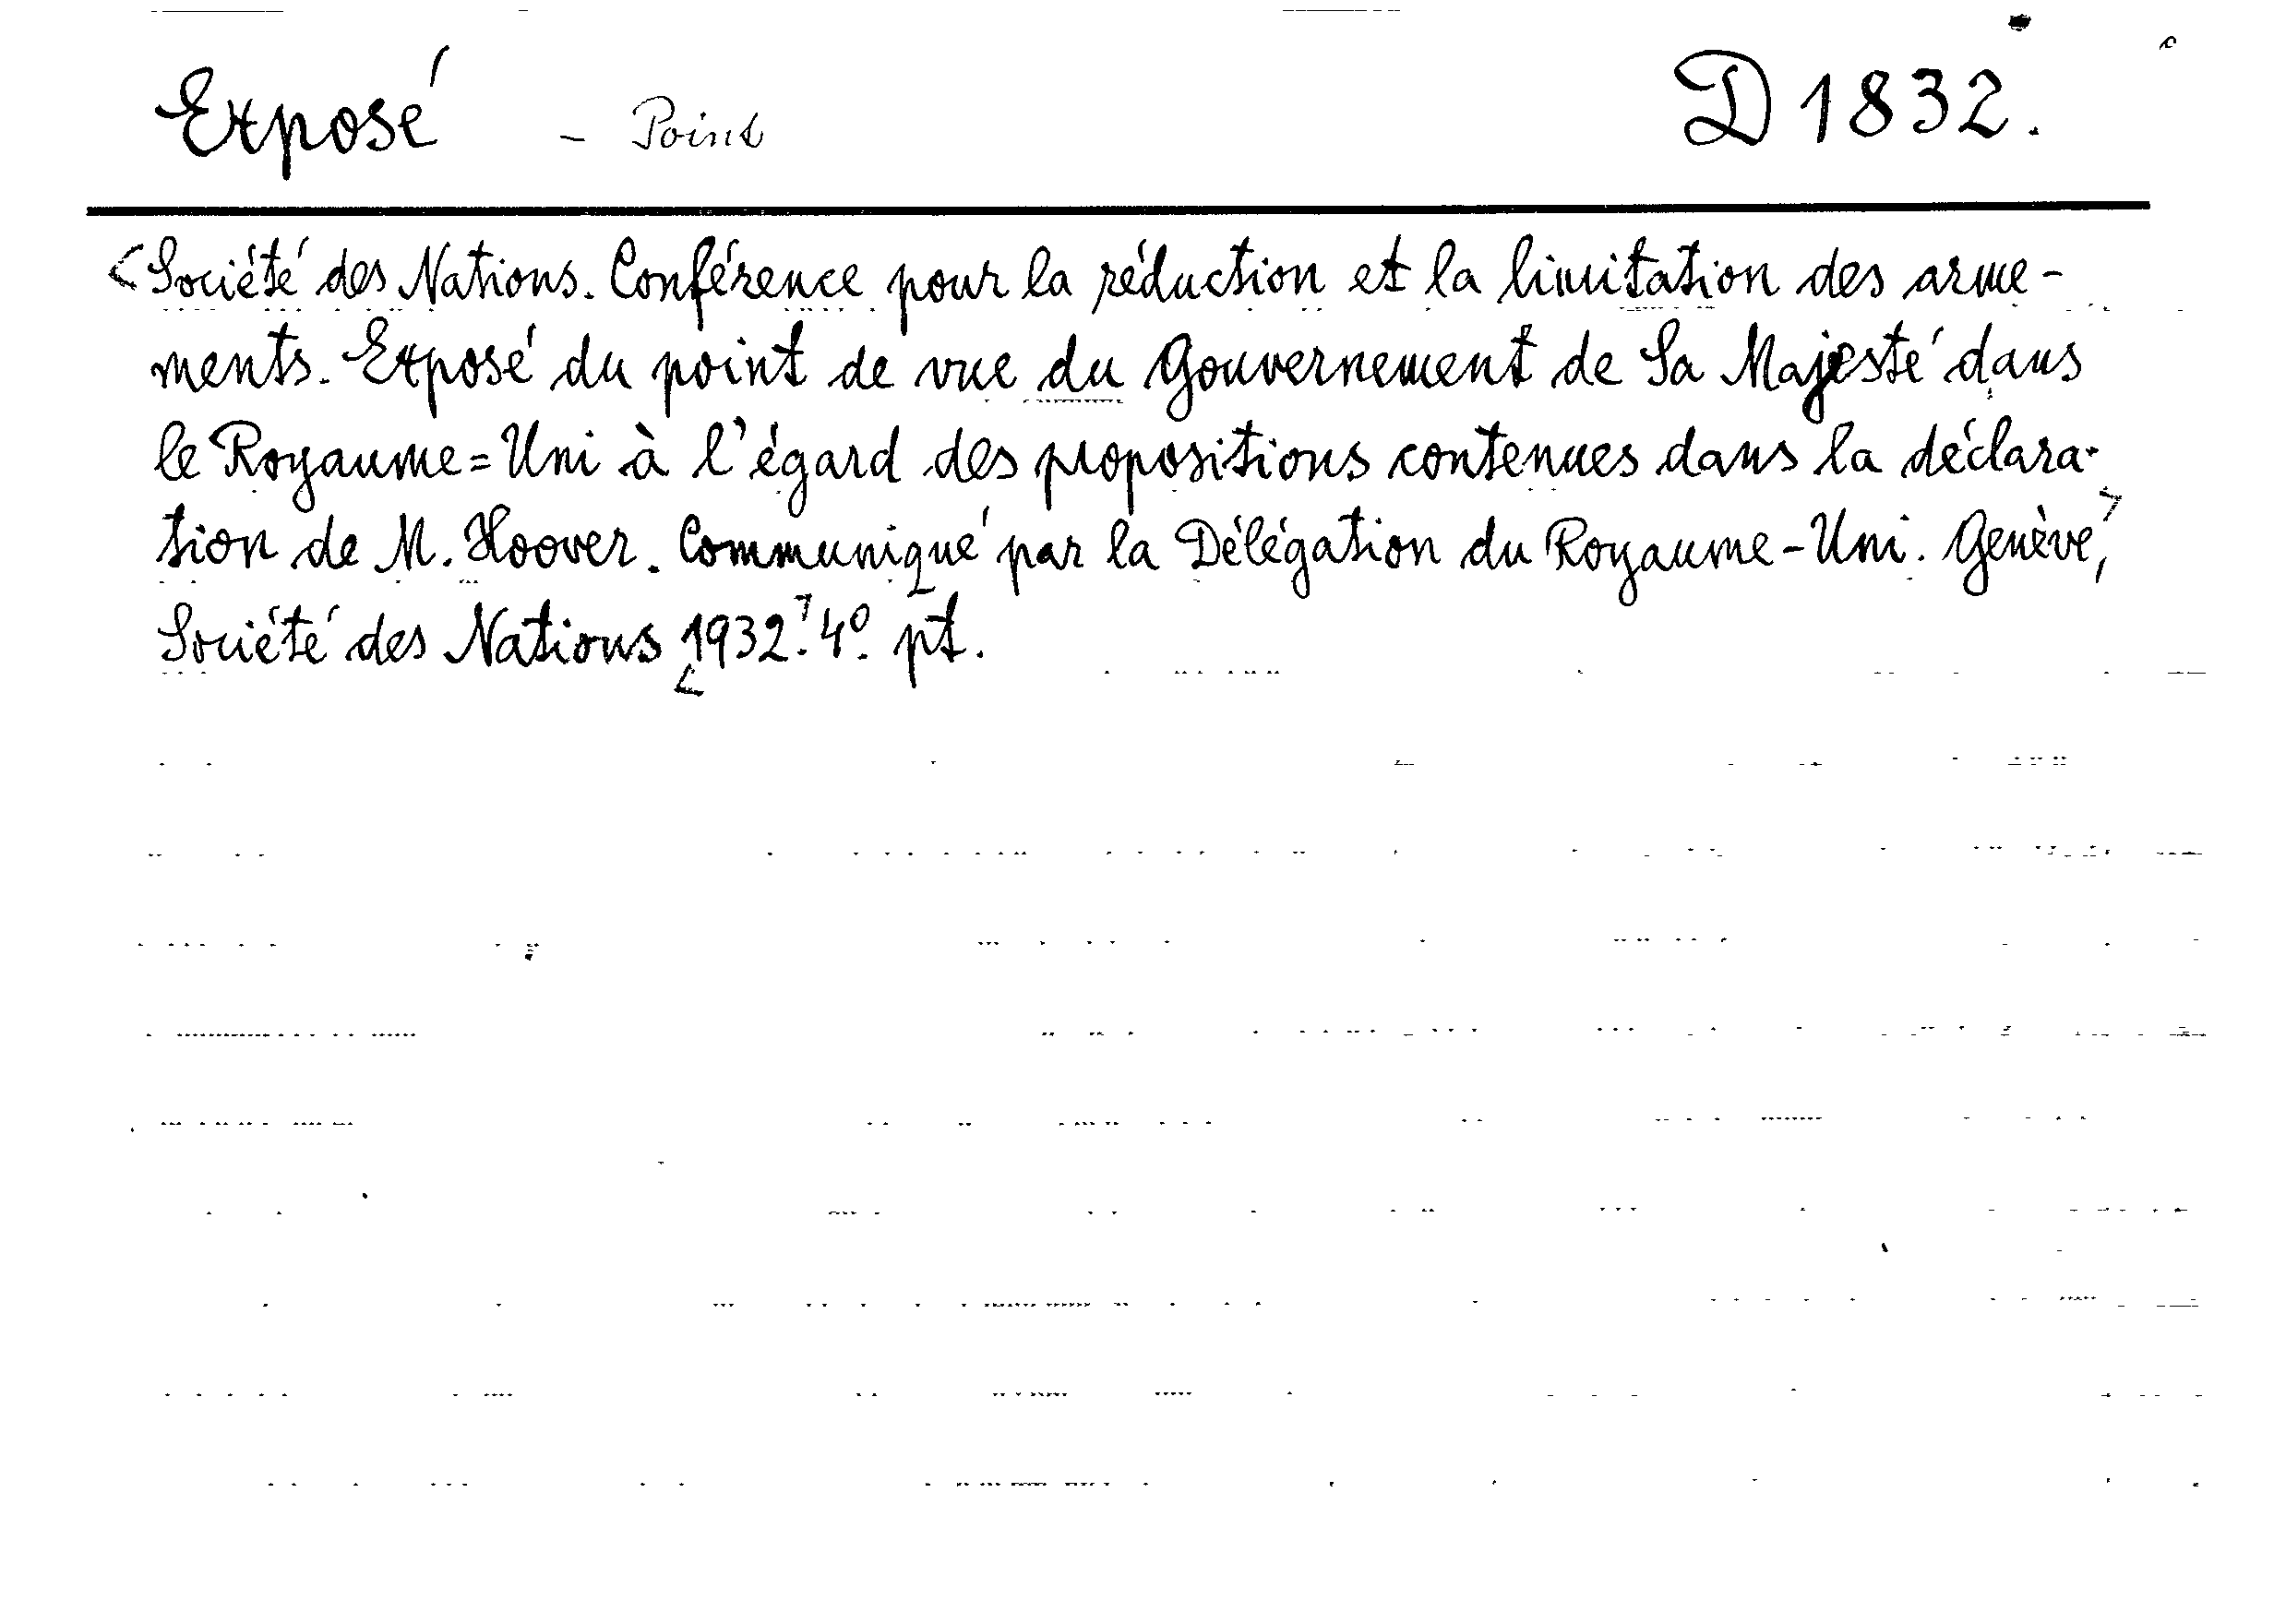 Exposé - Point D 1832.
<Société des Nations. Conférence pour la réduction et la limitation des arme-
ments. Exposé du point de vue du Gouvernement de Sa Majesté dans
le Royaume=Uni à l'égard des propositions contenues dans la déclara-
tion de M. Hoover. Communiqué par la Délégation du Royaume-Uni. Genève,>
Société des Nations <1932.> 4º. pt.